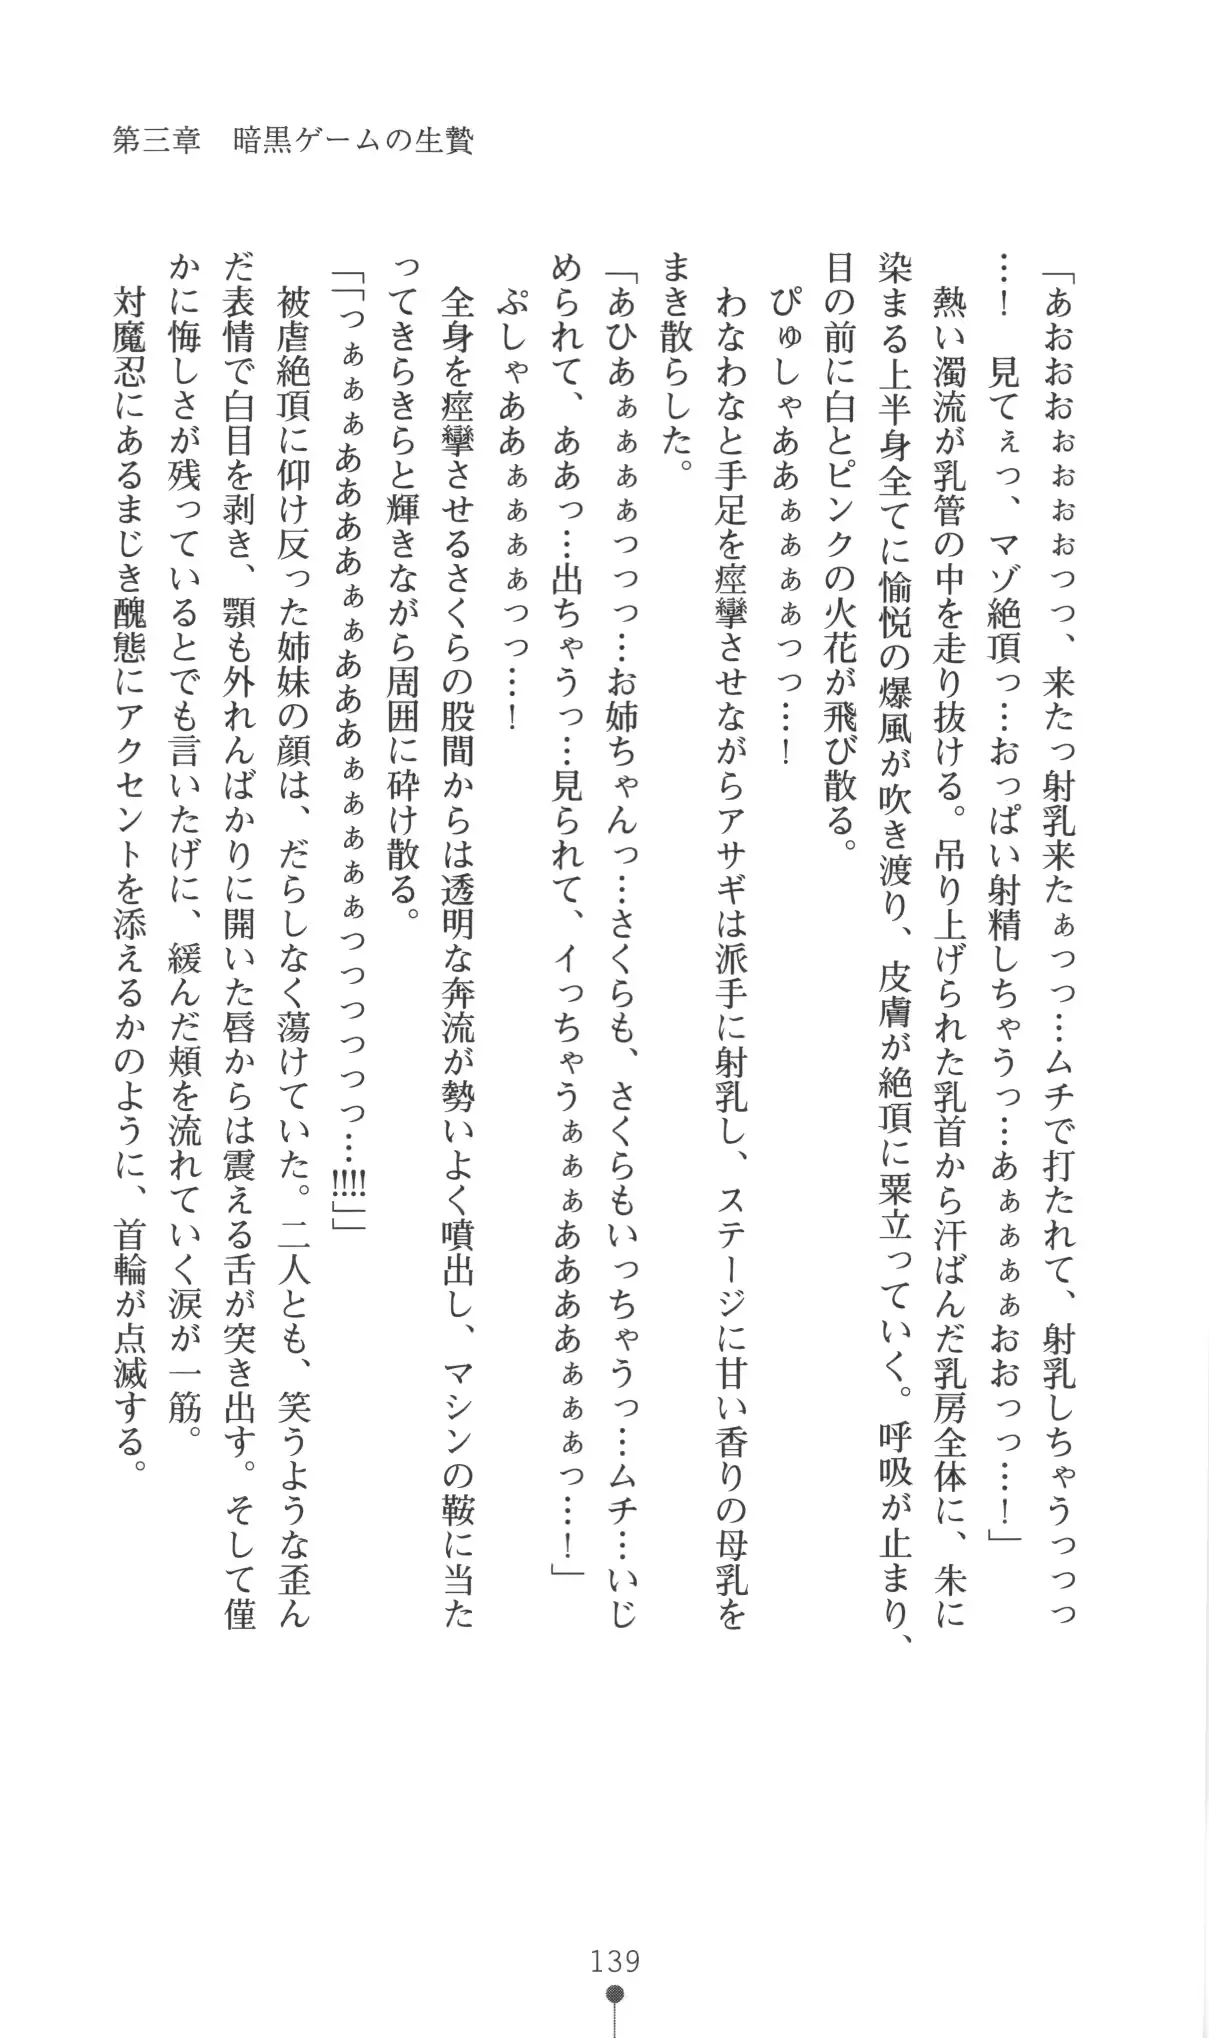 第三章　暗黒ゲームの生贄
「あおおおぉぉぉぉっっ、来たっ射乳来たぁっっ…ムチで打たれて、射乳しちゃうっっっ
…！　見てぇっ、マゾ絶頂っ…おっぱい射精しちゃうっ…あぁぁぁぁおおっっ…！」
熱い濁流が乳管の中を走り抜ける。吊り上げられた乳首から汗ばんだ乳房全体に、朱に
染まる上半身全てに愉悦の爆風が吹き渡り、皮膚が絶頂に粟立っていく。呼吸が止まり、
目の前に白とピンクの火花が飛び散る。
ぴゅしゃああぁぁぁぁっっ…！
わなわなと手足を痙攣させながらアサギは派手に射乳し、ステージに甘い香りの母乳を
まき散らした。
「あひあぁぁぁぁっっっ…お姉ちゃんっ…さくらも、さくらもいっちゃうっ…ムチ…いじ
められて、ああっ…出ちゃうっ…見られて、イっちゃうぁぁぁああああぁぁぁっ…！」
ぷしゃああぁぁぁぁっっ…！
全身を痙攣させるさくらの股間からは透明な奔流が勢いよく噴出し、マシンの鞍に当た
ってきらきらと輝きながら周囲に砕け散る。
「「っぁぁぁああああぁぁあああぁぁぁぁぁっっっっっっ…!!!!」」
被虐絶頂に仰け反った姉妹の顔は、だらしなく蕩けていた。二人とも、笑うような歪ん
だ表情で白目を剥き、顎も外れんばかりに開いた唇からは震える舌が突き出す。そして僅
かに悔しさが残っているとでも言いたげに、緩んだ頬を流れていく涙が一筋。
対魔忍にあるまじき醜態にアクセントを添えるかのように、首輪が点滅する。
139